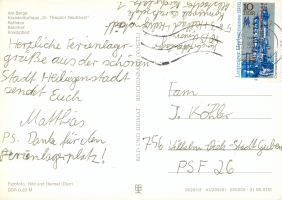 Am Berge
Kreiskulturhaus „Dr. Theodor Neubauer"
Rathaus
Bahnhof
Kneippbad
Herzliche Ferienlager-
grüße aus der schönen
Stadt Heiligenstadt
sendet Euch
Matthias
PS. Danke für den
Ferienlagerplatz!
BILD UND HEIMAT REICHENBACH
10
DDR
Fam
J. Köhler
756 Wilhelm-Pieck-Stadt Guben
PSF 26
Farbfoto: Bild und Heimat
DDR 0,20 M